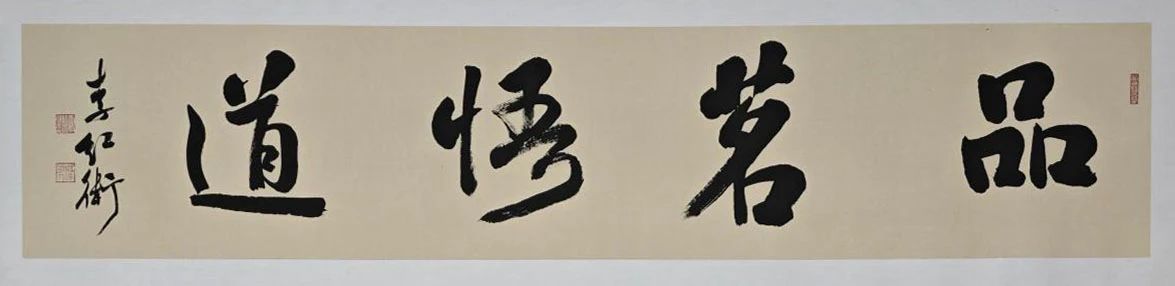 品茗悟道
李红卫